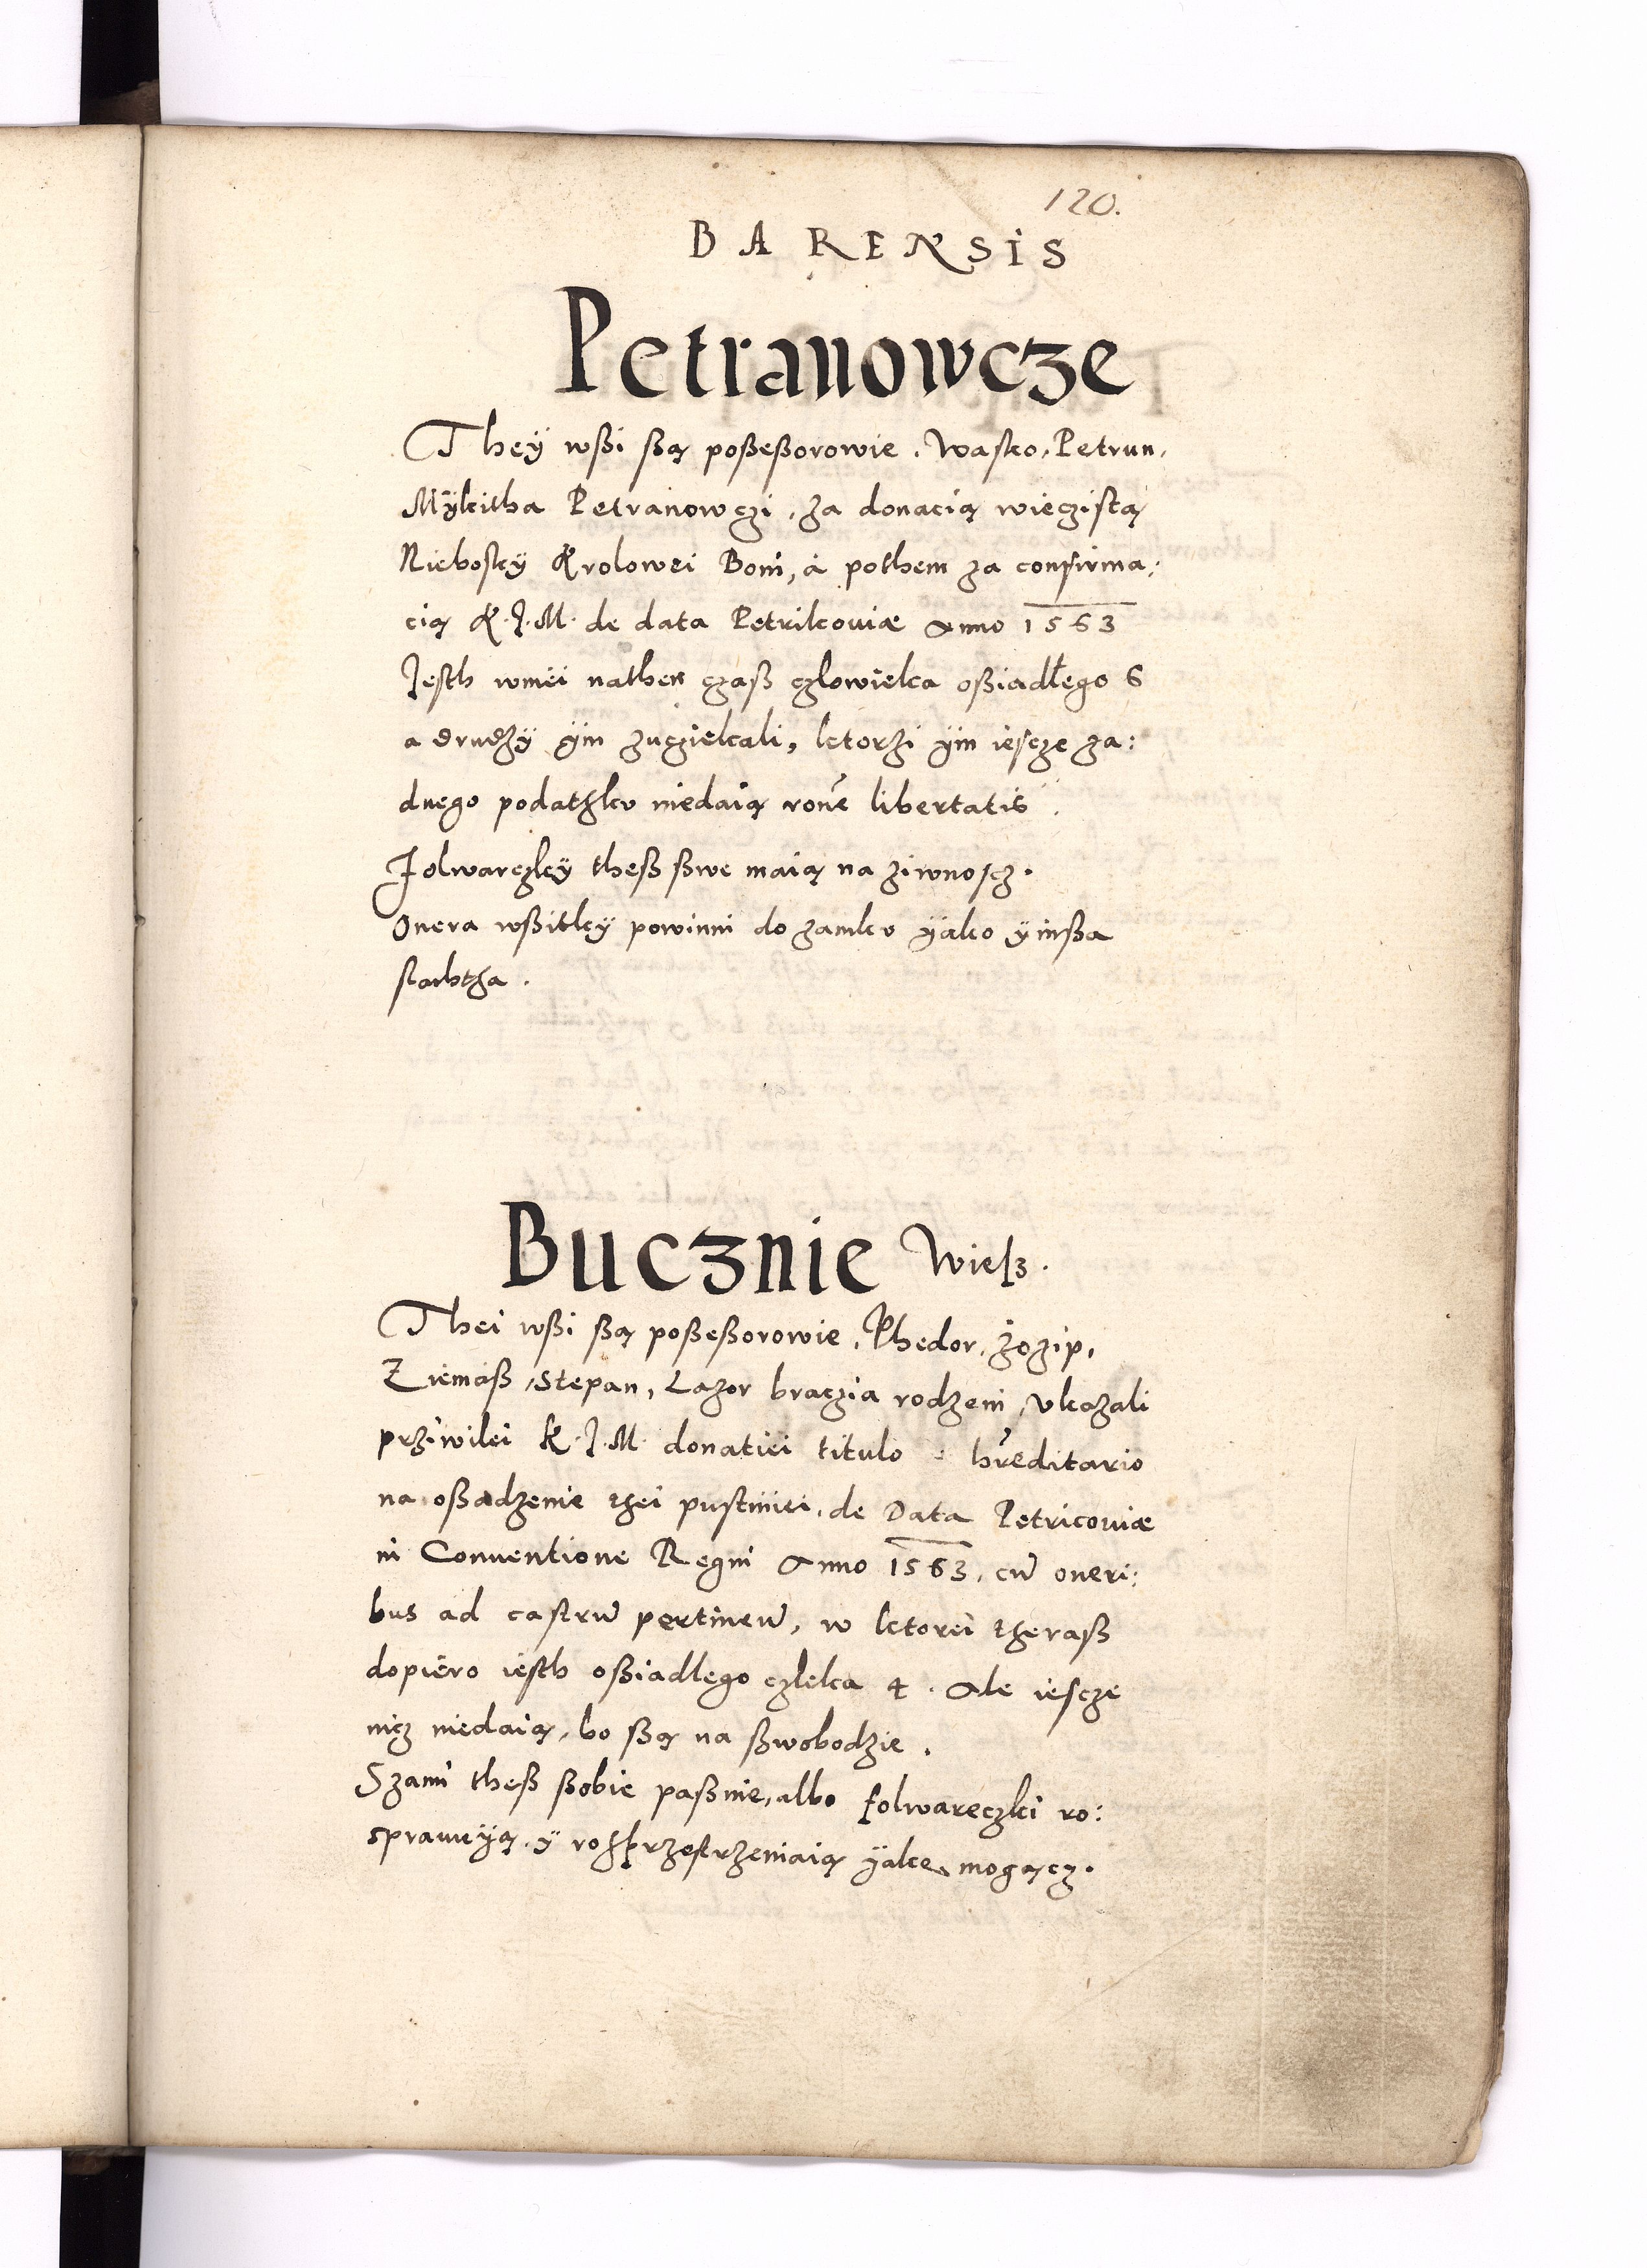 120.
BARENSIS
Petranowcze
They wßi ßą poßeßorowie. Wasko, Petrun,
Mÿkitha Petranowczi, za donacią wieczistą
Nieboskÿ Krolowei Boni, a pothem za confirma:
cią K. J. M. de data Petrikoviæ Anno 1563
Jesth wniei nathen czaß czlowieka oßiadłego 6
a drudzÿ ÿm zucziekali, ktorzi ÿm iescze za:
dnego podatzku niedaią ronē libertatis.
Folwarczkÿ theß ßwe maią na ziwnoscz.
Onera wßitkÿ powinni do zamku ÿako ÿinßa
slachtza.
Bucznie Wieß.
Thei wßi ßą poßeßorowie, Phedor, Zozip,
Ziemaß, Stepan, Lazor braczia rodzeni, vkazali
prziwilei K. J. M. donatiei titulo hreditario
na oßadzenie tzei pustiniei, de Data Petricoviæ
in Conventione Regni Anno 1563, cū oneri:
bus ad castrū pertineū, w ktorei tzeraß
dopiero iesth oßiadlego czleka 4. Ale iescze
nicz niedaią, bo ßą na ßwobodzie.
Szami theß ßobie paßnie, albo folwareczki ro:
sprawÿą. ÿ rozprzestrzeniaią ÿako mogącz.